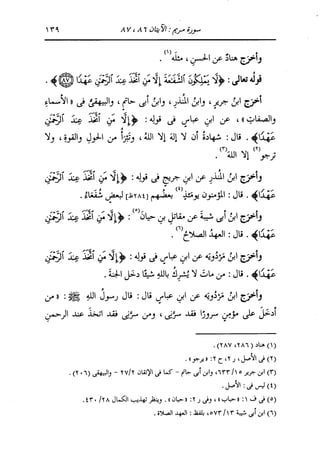 سورة مريم : الآيتان ٨٦ ، ٨٧
١٣٩
وأخرج هنادٌ عن الحسنِ ، مثلَه(١) .
قولُه تعالى : ﴿لَّا يَمْلِكُونَ الشَّفَاعَةَ إِلَّا مَنِ اتَّخَذَ عِندَ الرَّحْمَٰنِ عَهْدًا ﴿٨٧﴾﴾ .
أخرَج ابنُ جريرٍ ، وابنُ المنذرِ ، وابنُ أبى حاتمٍ ، والبيهقىُّ فى « الأسماءِ
والصفاتِ » ، عن ابنِ عباسٍ فى قولِه : ﴿إِلَّا مَنِ اتَّخَذَ عِندَ الرَّحْمَٰنِ
عَهْدًا﴾ . قال : شهادةُ أن لا إلهَ إلا اللهُ ، وتبَرَّأ من الحولِ والقوةِ ، ولا
ترجو(٢) إلا اللهَ(٣) .
وأخرَج ابنُ المنذرِ عن ابنِ جريجٍ فى قولِه : ﴿إِلَّا مَنِ اتَّخَذَ عِندَ الرَّحْمَٰنِ
عَهْدًا﴾ . قال : المؤمنون يومَئذٍ(٤) بعضُهم [٢٨٤ظ] لبعضٍ شفعاءُ .
وأخرَج ابنُ أبى شيبةَ عن مقاتلِ بنِ حيانَ(٥) : ﴿إِلَّا مَنِ اتَّخَذَ عِندَ الرَّحْمَٰنِ
عَهْدًا﴾ . قال : العهدُ الصلاحُ(٦) .
وأخرَج ابنُ مَرْدُويَه عن ابنِ عباسٍ فى قولِه : ﴿إِلَّا مَنِ اتَّخَذَ عِندَ الرَّحْمَٰنِ
عَهْدًا﴾ . قال : من مات لا يُشركُ باللهِ شيئًا دخَل الجنةَ .
وأخرَج ابنُ مَرْدُويَه عن ابنِ عباسٍ قال : قال رسولُ اللهِ ﷺ : « من
أدخَل على مؤمنٍ سرورًا فقد سرَّنى ، ومن سرَّنى فقد اتخَذ عندَ الرحمنِ
(١) هناد (٢٨٦ ، ٢٨٧) .
(٢) فى الأصل ، ر ٢ ، ح ٢ : « يرجو » .
(٣) ابن جرير ١٥/ ٦٣٣ ، وابن أبى حاتم - كما فى الإتقان ٢/ ٢٧ - والبيهقى (٢٠٦) .
(٤) ليس فى : الأصل .
(٥) فى ف ١ : « حباب » ، وفى ر ٢ : « حبان » . وينظر تهذيب الكمال ٢٨/ ٤٣٠ .
(٦) ابن أبى شيبة ١٣/ ٥٧٣ ، بلفظ : العهد الصلاة .